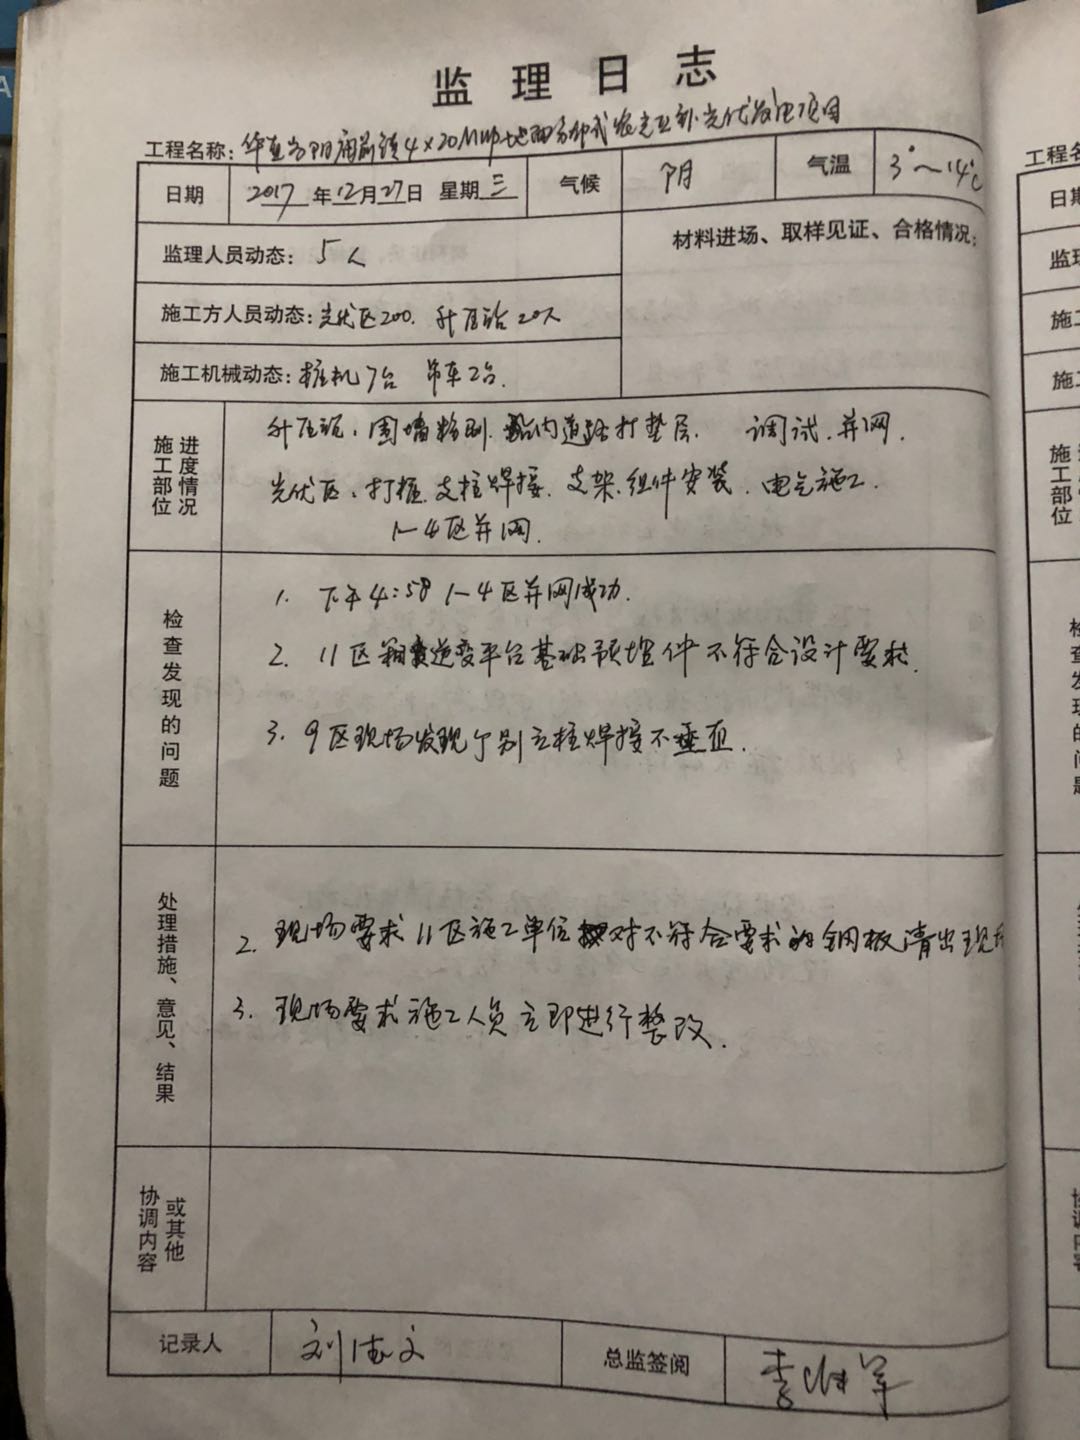 监理日志
工程名称: 华阴 4×20MWp地面分布式农光互补光伏发电项目
日期 2017年12月27日 星期三 气候 阴 气温 3°~14℃
监理人员动态: 5人
材料进场、取样见证、合格情况:
施工方人员动态: 光伏区200. 升压站20人
施工机械动态: 桩机7台 吊车2台.
施工部位进度情况
升压站: 围墙粉刷. 站内道路打垫层. 调试. 并网.
光伏区: 打桩. 支柱焊接. 支架.组件安装. 电气施工.
1~4区并网.
检查发现的问题
1. 下午4:58 1~4区并网成功.
2. 11区 逆变平台基础预埋件不符合设计要求.
3. 9区现场发现个别立柱焊接不垂直.
处理措施、意见、结果
2. 现场要求11区施工单位 对不符合要求的钢板清出现场
3. 现场要求施工人员立即进行整改.
协调内容或其他
记录人 刘德文 总监签阅 李 军
工程名
日期
监理
施工
施工
施工部位
检查发现的问题
协调内容